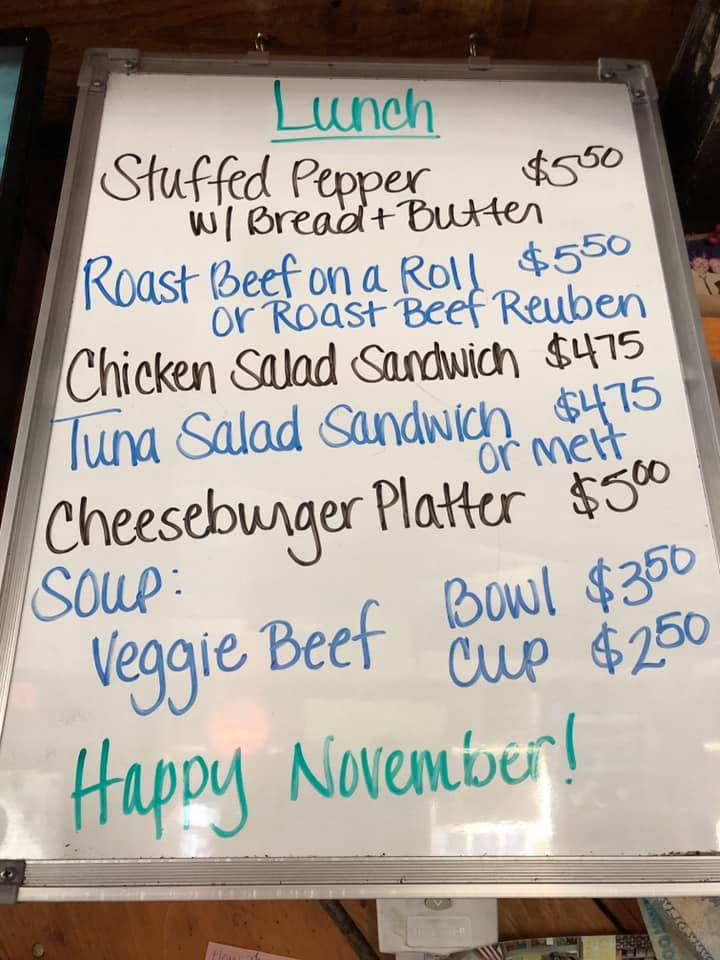 Lunch
Stuffed Pepper $5.50
w/ Bread + Butter
Roast Beef on a Roll $5.50
or Roast Beef Reuben
Chicken Salad Sandwich $4.75
Tuna Salad Sandwich $4.75
or melt
Cheeseburger Platter $5.00
Soup:
Veggie Beef
Bowl $3.50
Cup $2.50
Happy November!